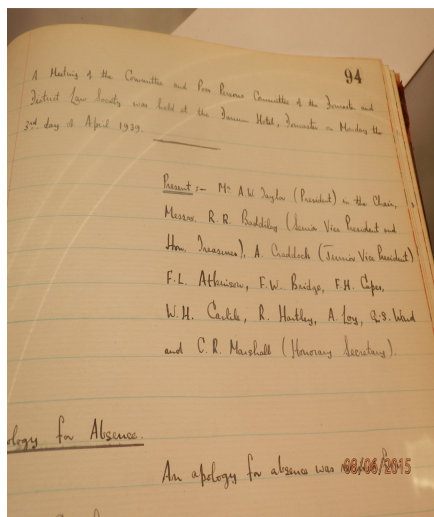 94
A Meeting of the Committee and Poor Persons Committee of the Doncaster and
District Law Society was held at the Danum Hotel, Doncaster on Monday the
3rd day of April 1939.
Present :- Mr. A.W. Taylor (President) in the Chair,
Messrs. R.R. (Senior Vice President and
Hon. Treasurer), A. Craddock (Junior Vice President)
F.L. Atkinson, F.W. Bridge, F.H.
W.H. Carlile, R. Hartley, A. Loy, Ward
and C.R. Marshall (Honorary Secretary).
ology for Absence.
An apology for absence was
08/06/2015